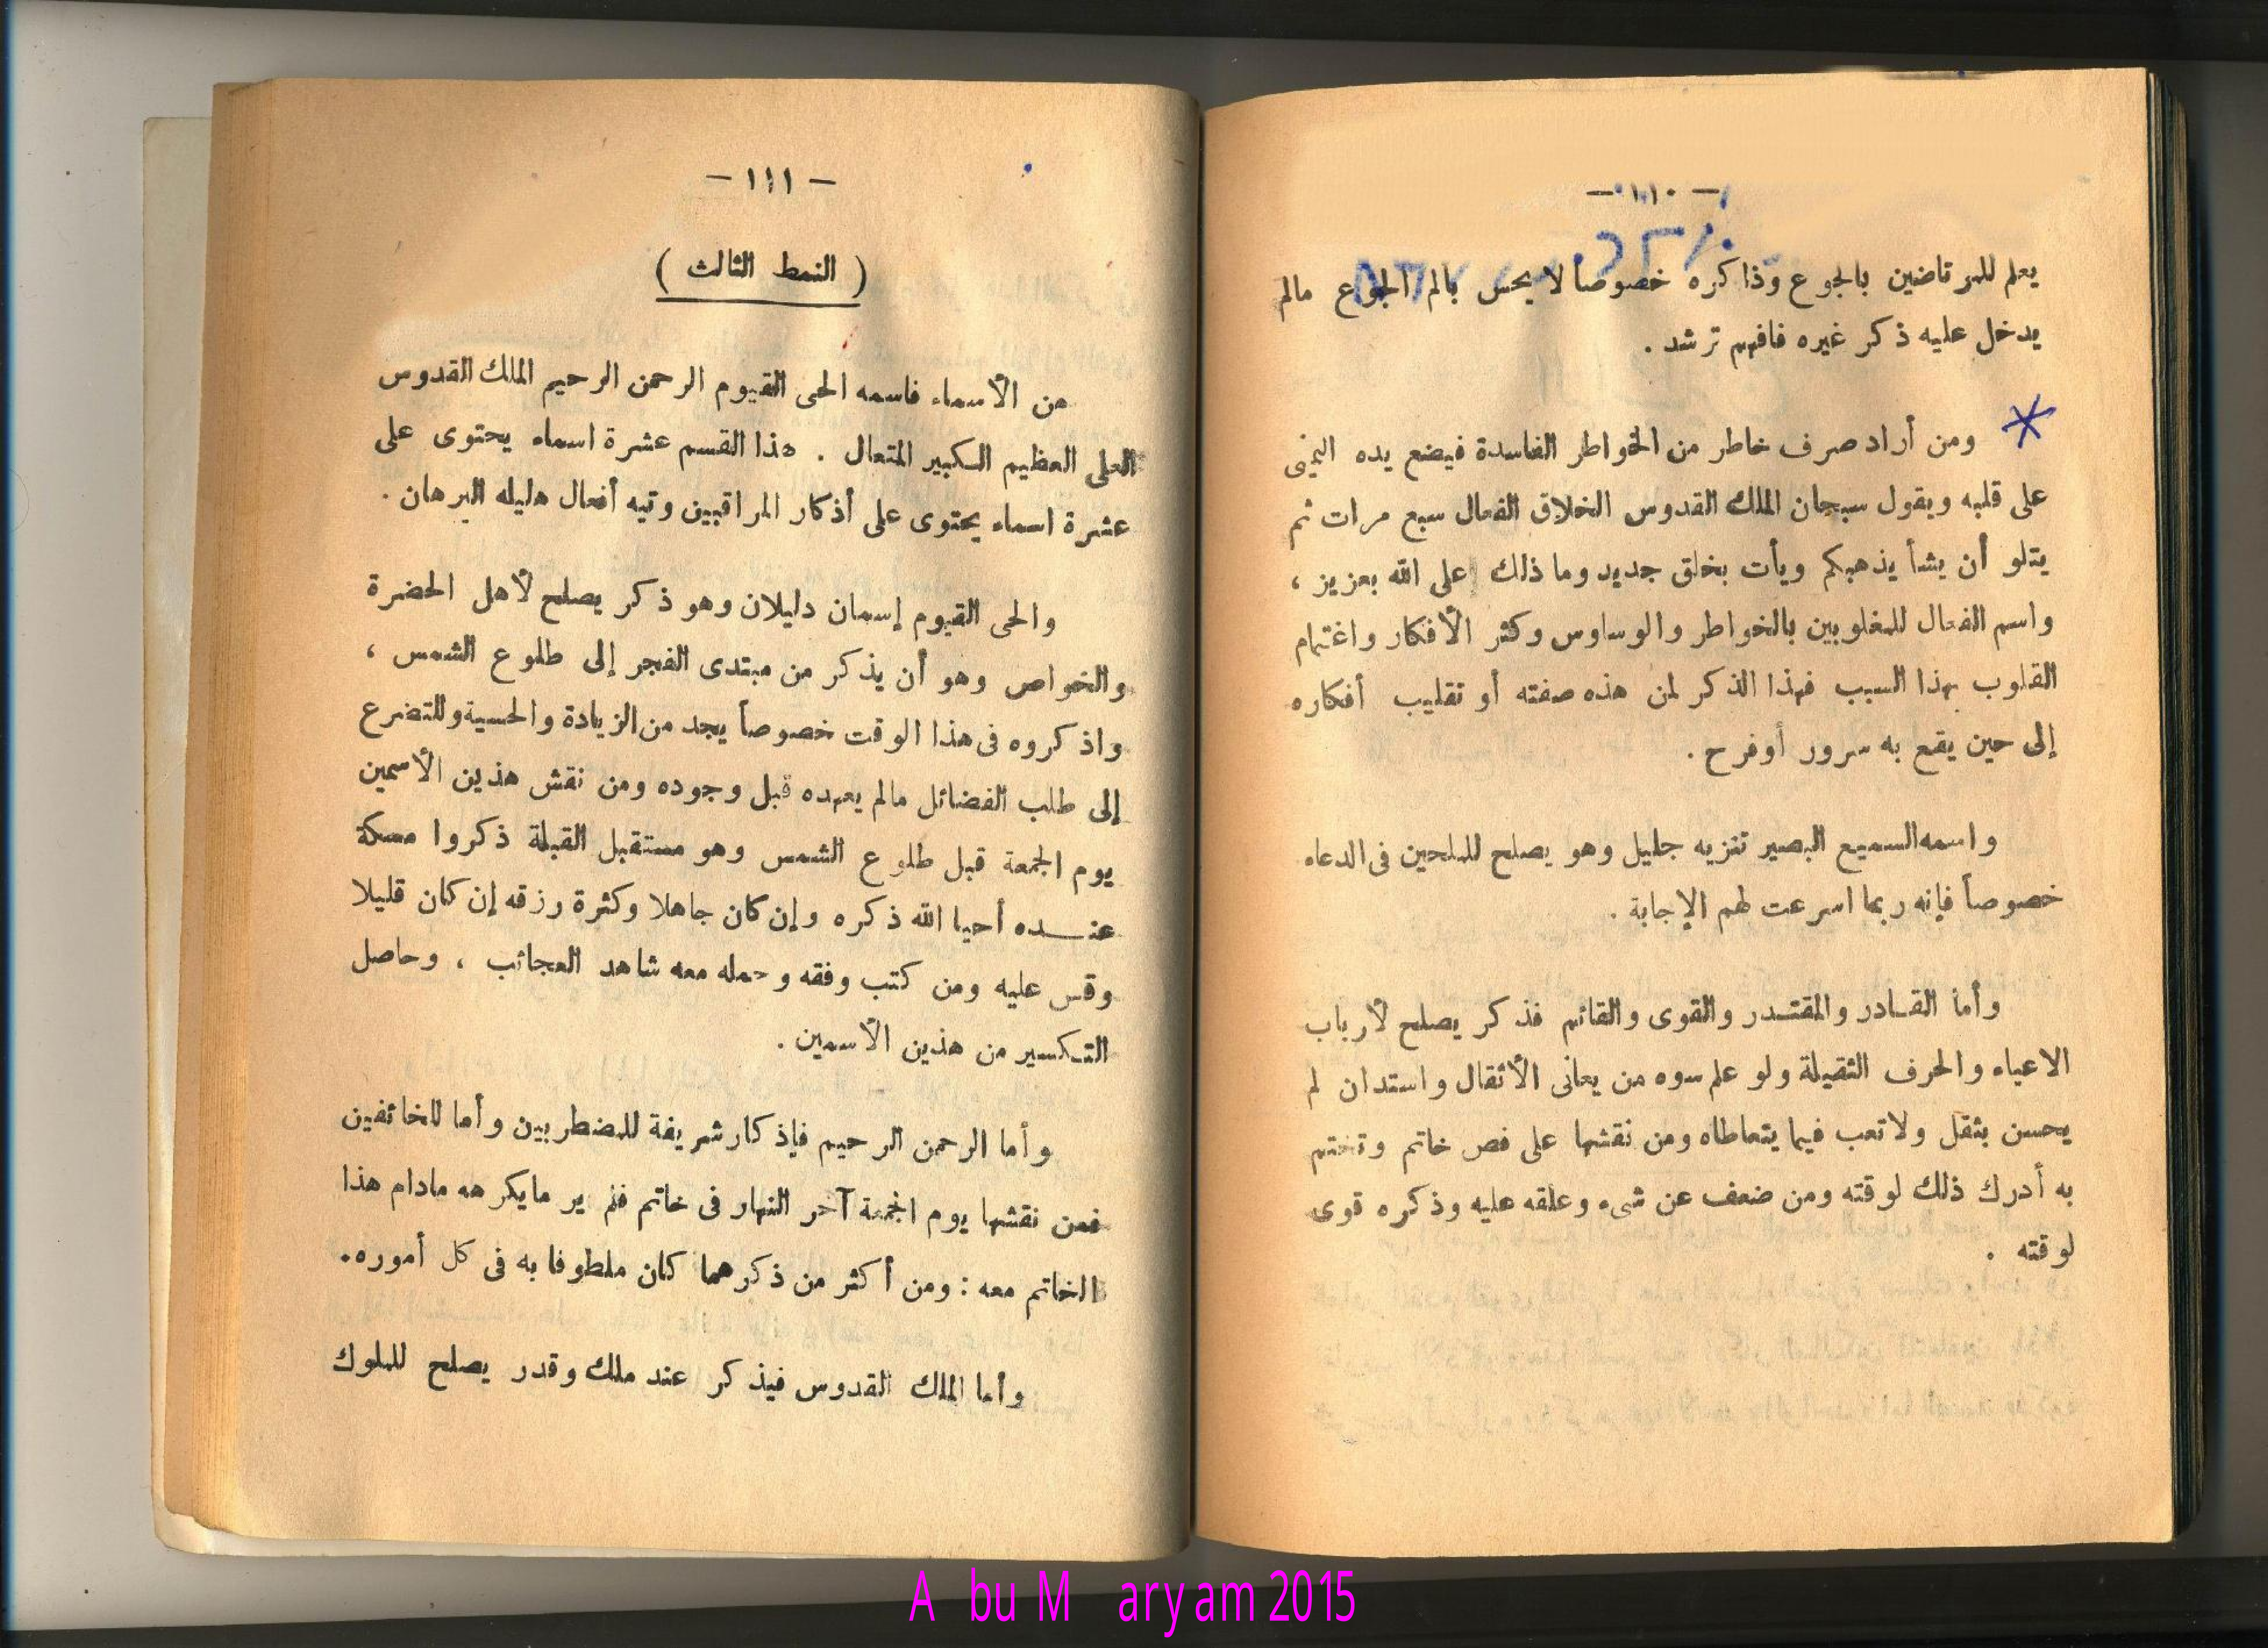 — ١١٠ —
يعلم للمرتاضين بالجوع وذاكره خصوصاً لا يحس بالم الجوع مالم
يدخل عليه ذكر غيره فافهم ترشد .
ومن أراد صرف خاطر من الخواطر الفاسدة فيضع يده اليمنى
على قلبه ويقول سبحان الملك القدوس الخلاق الفعال سبع مرات ثم
يتلو أن يشأ يذهبكم ويأت بخلق جديد وما ذلك على الله بعزيز ،
واسم الفعال للمغلوبين بالخواطر والوساوس وكثر الأفكار واغتمام
القلوب بهذا السبب فهذا الذكر لمن هذه صفته أو تقليب أفكاره
إلى حين يقع به سرور أوفرح .
واسمه السميع البصير تنزيه جليل وهو يصلح للملحين فى الدعاء
خصوصاً فإنه ربما اسرعت لهم الإجابة .
وأما القـادر والمقتـدر والقوى والقائم فذكر يصلح لأرباب
الاعباء والحرف الثقيلة ولو علم سوه من يعانى الأثقال واستدان لم
يحسن بثقل ولا تعب فيما يتعاطاه ومن نقشها على فص خاتم وتختم
به أدرك ذلك لوقته ومن ضعف عن شىء وعلقه عليه وذكره قوى
لوقته .
— ١١١ —
( النمط الثالث )
من الأسماء فاسمه الحى القيوم الرحمن الرحيم الملك القدوس
العلى العظيم الكبير المتعال . هذا القسم عشرة اسماء يحتوى على
عشرة اسماء يحتوى على أذكار المراقبين وتيه أفعال هليله البرهان .
والحى القيوم إسمان دليلان وهو ذكر يصلح لأهل الحضرة
والخواص وهو أن يذكر من مبتدى الفجر إلى طلوع الشمس ،
واذكروه فى هذا الوقت خصوصاً يجد من الزيادة والحسية وللتضرع
إلى طلب الفضائل مالم يعهده قبل وجوده ومن نقش هذين الأسمين
يوم الجمعة قبل طلوع الشمس وهو مستقبل القبلة ذكروا مسكة
عنـــده أحيا الله ذكره وإن كان جاهلا وكثرة رزقه إن كان قليلا
وقس عليه ومن كتب وفقه وحمله معه شاهد العجائب ، وحاصل
التكسير من هذين الأسمين .
وأما الرحمن الرحيم فإذكار شريفة للمضطربين وأما للخائفين
فمن نقشها يوم الجمعة آخر النهار فى خاتم فلم ير مايكرهه مادام هذا
الخاتم معه : ومن أكثر من ذكرهما كان ملطوفا به فى كل أموره.
وأما الملك القدوس فيذكر عند ملك وقدر يصلح للملوك
Abu Maryam 2015